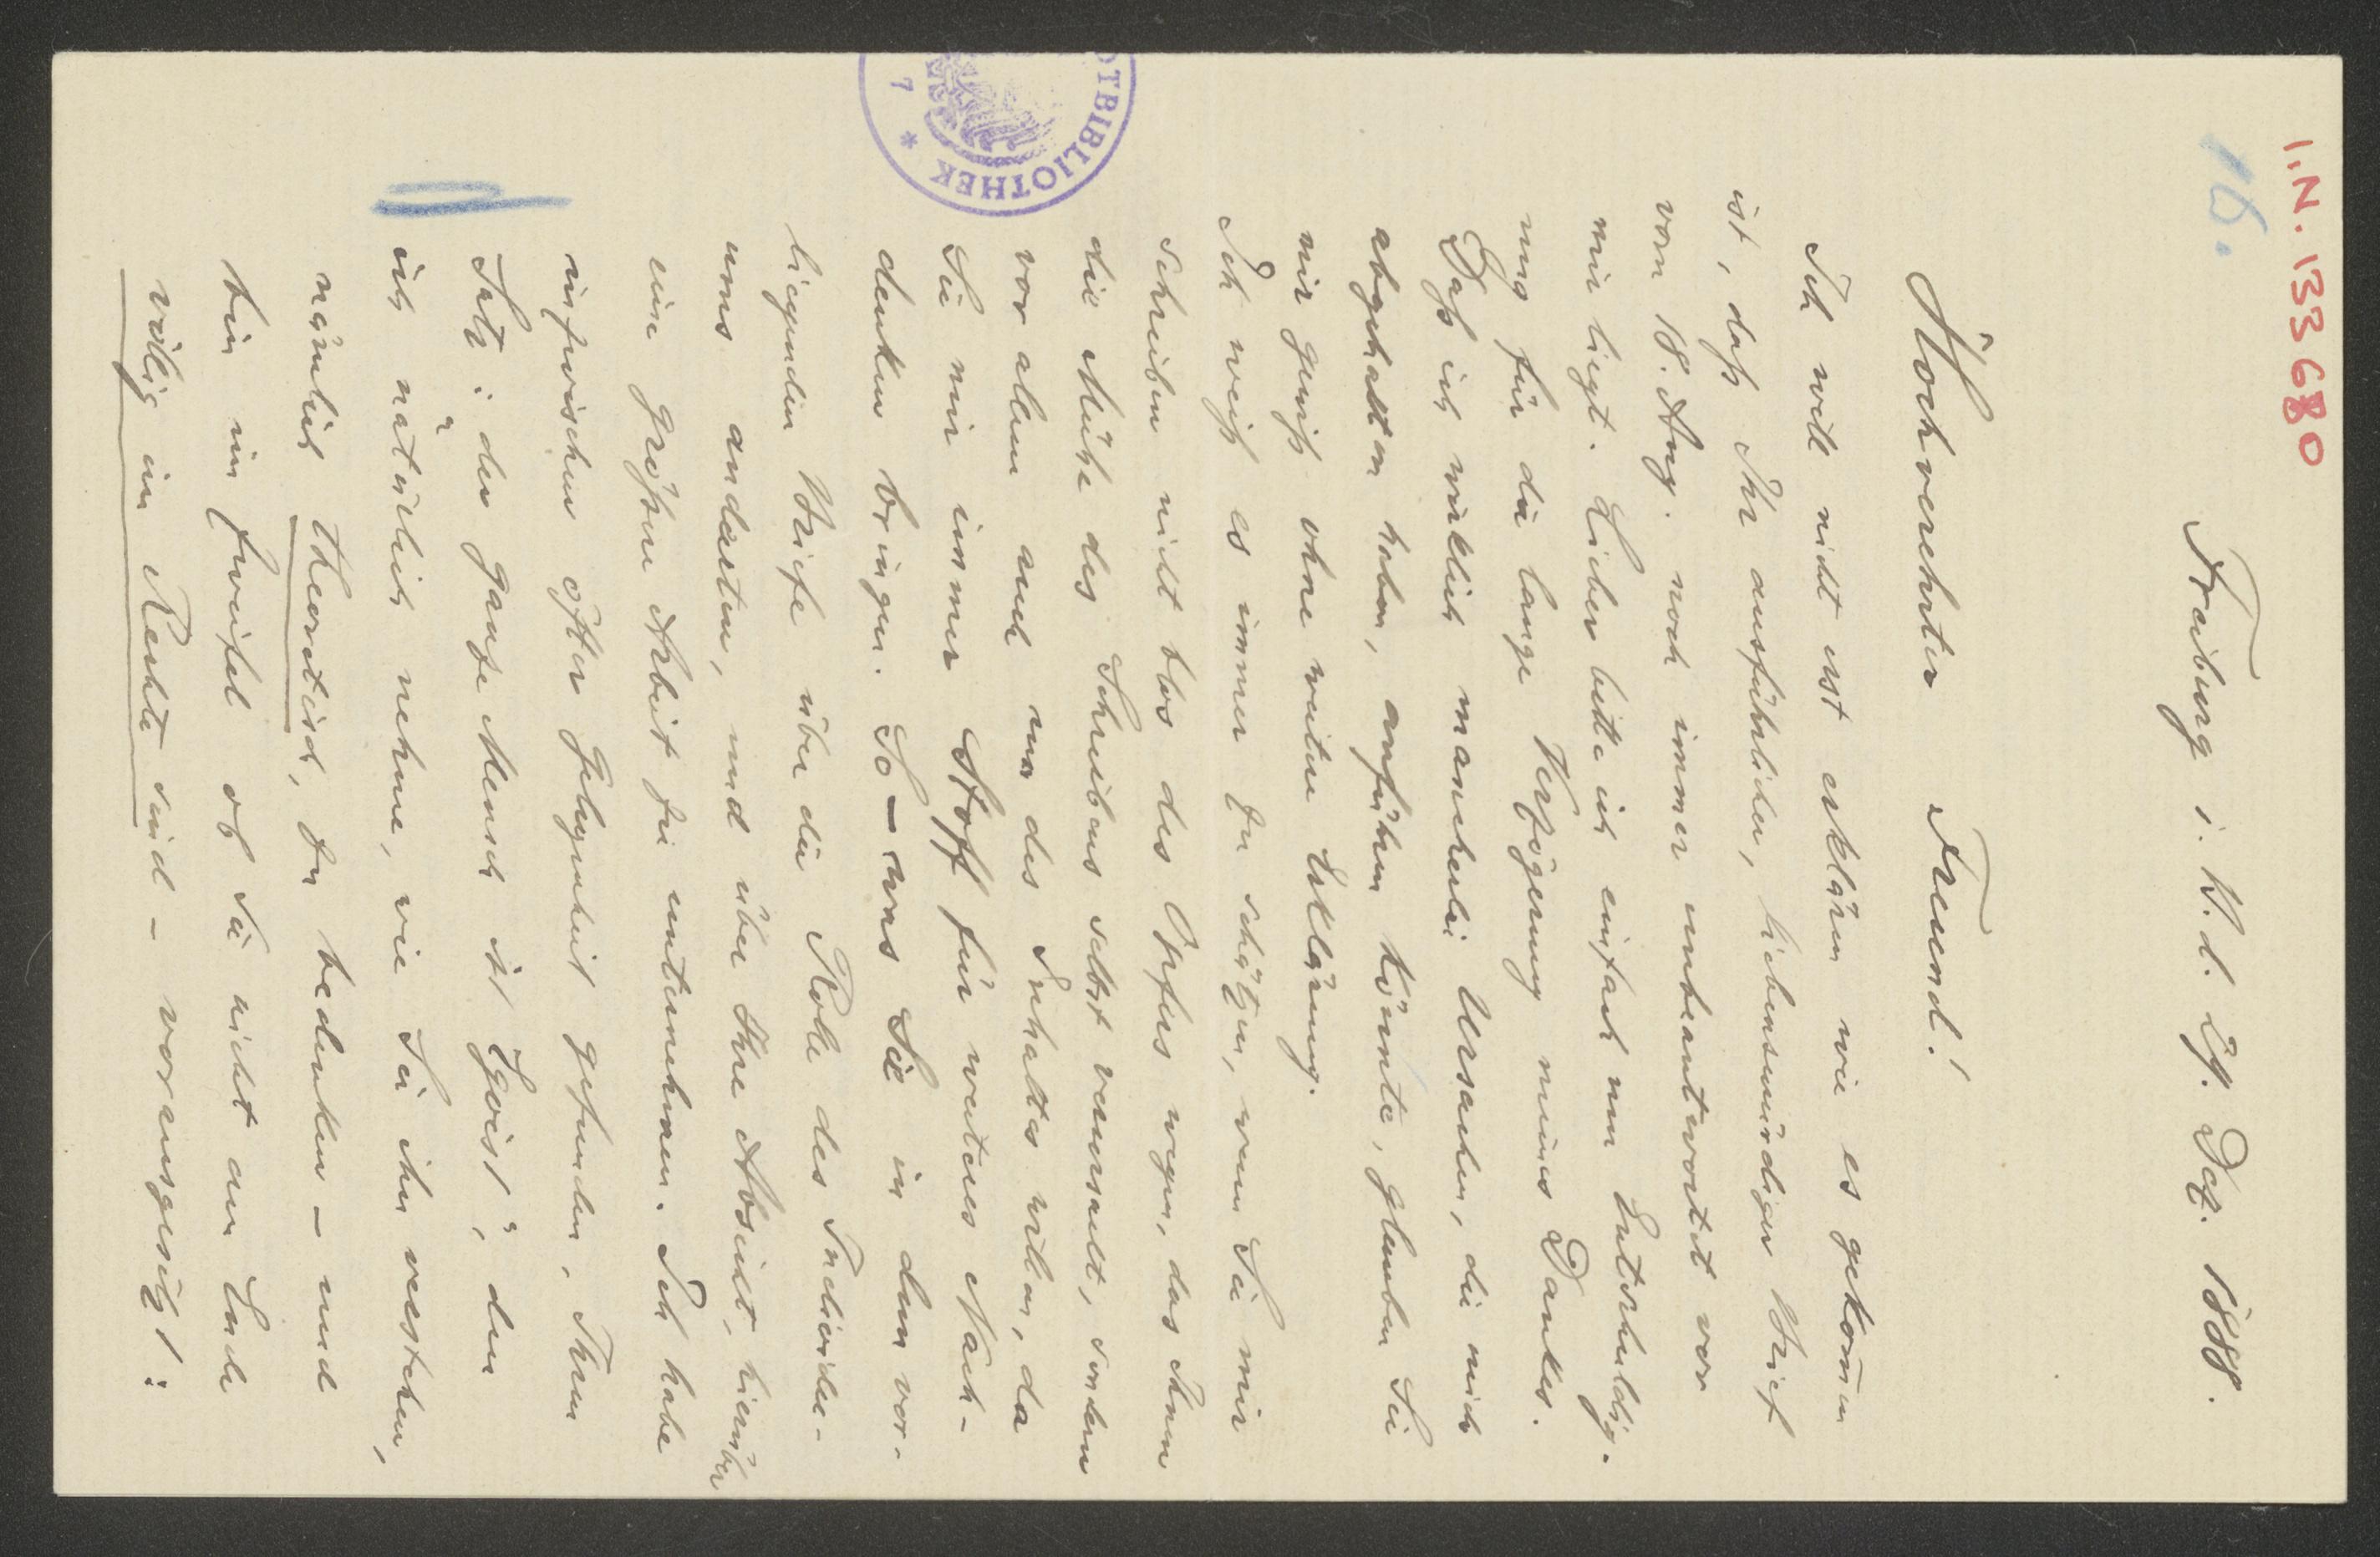 I.N. 133680
16.
Freiburg i. B. d. 29. Dez. 1888.
Hochverehrter Freund!
Ich will nicht erst erklären wie es gekom̄en
ist, daß Ihr ausführlicher, liebenswürdiger Brief
vom 18. Aug. noch immer unbeantwortet vor
mir liegt. Lieber bitte ich einfach um Entschuldig-
ung für die lange Verzögerung meines Dankes.
Daß ich wirklich mancherlei Ursachen, die mich
abgehalten haben, anführen kön̄te, glauben Sie
mir gewiß ohne weitere Erklärung.
Ich weiß es immer zu schätzen, wenn Sie mir
schreiben nicht blos des Opfers wegen, das Ihnen
die Mühe des Schreibens selbst verursacht, sondern
vor allem auch um des Inhaltes willen, da
Sie mir immer Stoff für weiteres Nach-
denken bringen. So – was Sie in dem vor-
liegenden Briefe über die Rolle des Individu-
ums andeuten, und über Ihre Absicht, hierüber
eine größere Arbeit zu unternehmen. Ich habe
inzwischen öfter Gelegenheit gefunden, Ihren
Satz: "der ganze Mensch ist Egoist", den
ich natürlich nehme, wie Sie ihn verstehen,
nämlich theoretisch, zu bedenken – und
bin im Zweifel ob Sie nicht am Ende
völlig im Rechte sind – vorausgesetzt:
OTBIBLIOTHEK * 7